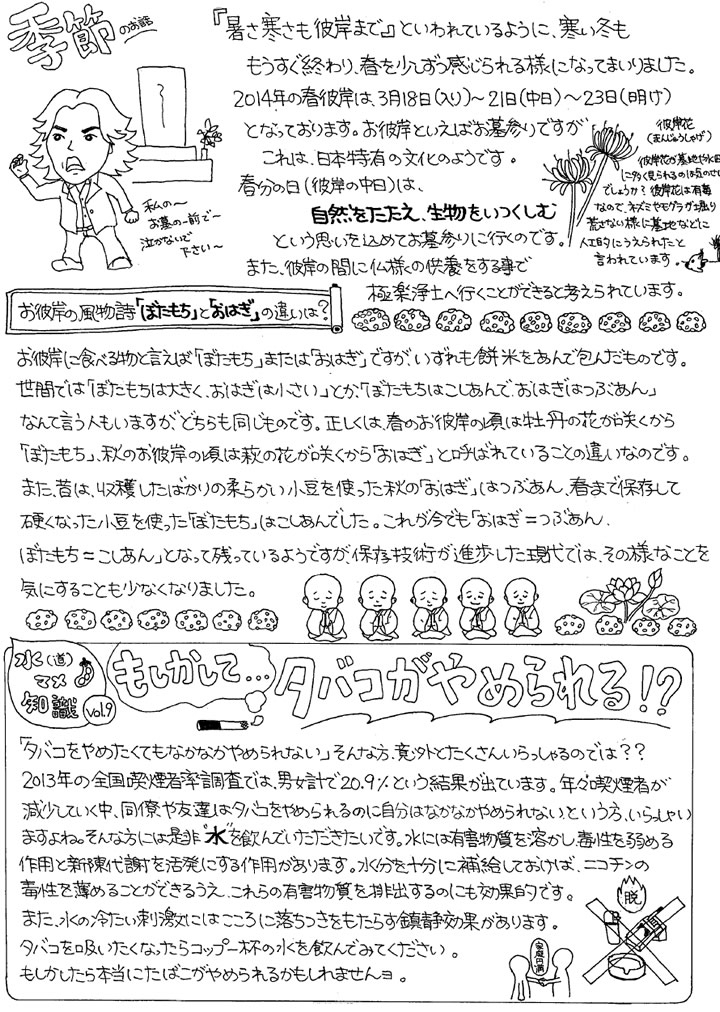 季節のお話
『暑さ寒さも彼岸まで』といわれているように、寒い冬も
もうすぐ終わり、春を少しずつ感じられる様になってまいりました。
2014年の春彼岸は、3月18日(入り)～21日(中日)～23日(明け)
となっております。お彼岸といえばお墓参りですが
これは、日本特有の文化のようです。
春分の日(彼岸の中日)は、
自然をたたえ、生物をいつくしむ
という思いを込めてお墓参りに行くのです。
また、彼岸の間に仏様の供養をする事で
極楽浄土へ行くことができると考えられています。
私の～
お墓の前で～
泣かないで
下さい～
彼岸花
(まんじゅうしゃげ)
彼岸花が墓地や水田
に多く見られるのは気のせい
でしょうか？彼岸花は有毒
なので、ネズミやモグラが掘り
荒さない様に墓地などに
人工的にうえられたと
言われています。
お彼岸の風物詩「ぼたもち」と「おはぎ」の違いは？
お彼岸に食べる物と言えば「ぼたもち」または「おはぎ」ですが、いずれも餅米をあんで包んだものです。
世間では「ぼたもちは大きく、おはぎは小さい」とか、「ぼたもちはこしあんで、おはぎはつぶあん」
なんて言う人もいますが、どちらも同じものです。正しくは、春のお彼岸の頃は牡丹の花が咲くから
「ぼたもち」、秋のお彼岸の頃は萩の花が咲くから「おはぎ」と呼ばれていることの違いなのです。
また、昔は、収穫したばかりの柔らかい小豆を使った秋の「おはぎ」はつぶあん、春まで保存して
硬くなった小豆を使った「ぼたもち」はこしあんでした。これが今でも「おはぎ＝つぶあん、
ぼたもち＝こしあん」となって残っているようですが、保存技術が進歩した現代では、その様なことを
気にすることも少なくなりました。
水(道)
マメ
知識
Vol.9
もしかして…
タバコがやめられる!?
「タバコをやめたくてもなかなかやめられない」そんな方、意外とたくさんいらっしゃるのでは？？
2013年の全国喫煙者率調査では、男女計で20.9％という結果が出ています。年々喫煙者が
減少していく中、同僚や友達はタバコをやめられるのに自分はなかなかやめられない、という方、いらっしゃい
ますよね。そんな方には是非“水”を飲んでいただきたいです。水には有害物質を溶かし、毒性を弱める
作用と新陳代謝を活発にする作用があります。水分を十分に補給しておけば、ニコチンの
毒性を薄めることができるうえ、これらの有害物質を排出するのにも効果的です。
また、水の冷たい刺激にはこころに落ちつきをもたらす鎮静効果があります。
タバコを吸いたくなったらコップ一杯の水を飲んでみてください。
もしかしたら本当にたばこがやめられるかもしれませんョ。
家庭円満
脱